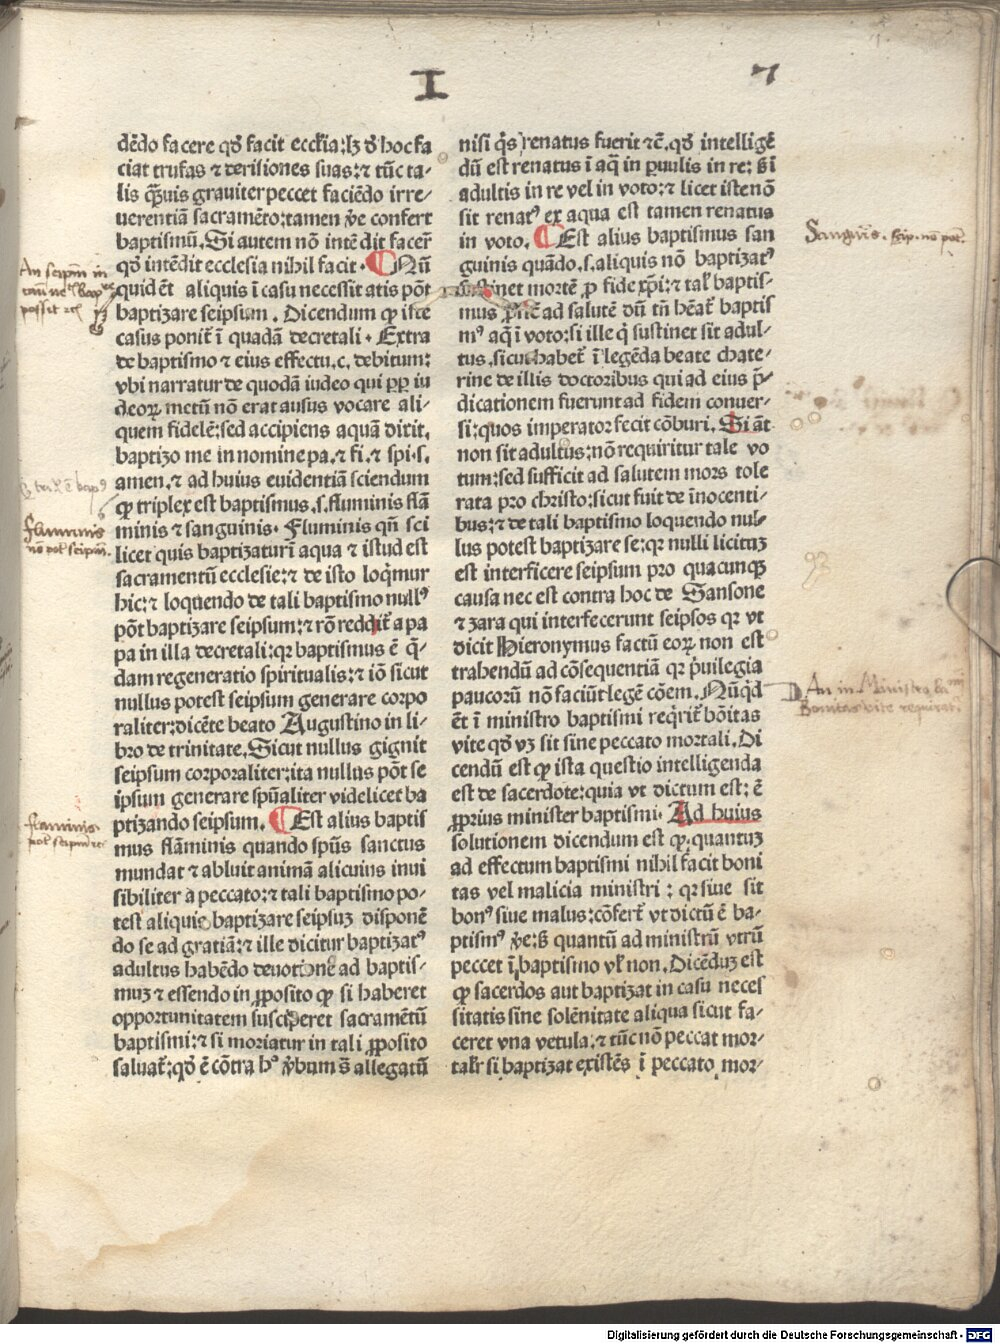 I
7
dēdo facere qd̕ facit eccl̕ia: lꝫ d̕ hoc fa
ciat trufas ⁊ derisiones suas: ⁊ tūc ta-
lis q̄ꝫuis grauiter peccet faciēdo irre-
uerentiā sacramēto: tamen v̄e confert
baptismū. Si autem nō intēdit facer̄
qd̕ intēdit ecclesia nihil facit. Nū
quid ēt aliquis ī casu necessitatis pōt
baptizare seipsum. Dicendum ꝙ iste
casus ponit̄ ī quadā decretali. Extra
de baptismo ⁊ eius effectu. c. debitum:
vbi narratur de quodā iudeo qui ꝓp̄ iu
deoꝝ metū nō erat ausus vocare ali-
quem fidelē: sed accipiens aquā dixit.
baptizo me in nomine pa. ⁊ fi. ⁊ spi. s.
amen. ⁊ ad huius euidentiā sciendum
ꝙ triplex est baptismus .s. fluminis flā
minis ⁊ sanguinis. Fluminis qn̄ sci
licet quis baptizatur ī aqua ⁊ istud est
sacramentū ecclesie: ⁊ de isto loq̄mur
hic: ⁊ loquendo de tali baptismo nullꝰ
pōt baptizare seipsum: ⁊ rō reddit̄ a pa
pa in illa decretali: qꝛ baptismus ē q̄-
dam regeneratio spiritualis: ⁊ iō sicut
nullus potest seipsum generare corpo
raliter: dicēte beato Augustino in li-
bro de trinitate. Sicut nullus gignit
seipsum corporaliter: ita nullus pōt se
ipsum generare spūaliter videlicet ba
ptizando seipsum. Est alius baptis
mus flāminis quando spūs sanctus
mundat ⁊ abluit animā alicuius inui
sibiliter a peccato: ⁊ tali baptismo po-
test aliquis baptizare seipsuꝫ disponē
do se ad gratiā: ⁊ ille dicitur baptizatꝰ
adultus habēdo deuotionē ad baptis-
muꝫ ⁊ essendo in ꝓposito ꝙ si haberet
opportunitatem susciperet sacramētū
baptismi: ⁊ si moriatur in tali ꝓposito
saluat̄: qd̕ ē cōtra hº v̄bum s̄ allegatū
nisi q̄s renatus fuerit ⁊c̄. qd̕ intelligē
dū est renatus ī aq̄ in ꝑuulis in re: s̄ ī
adultis in re vel in voto: ⁊ licet iste nō
sit renatꝰ ex aqua est tamen renatus
in voto. Est alius baptismus san
guinis quādo .s. aliquis nō baptizatꝰ
sustinet mortē ꝓ fide xp̄i: ⁊ tal̕ baptis-
mus ꝓdēst ad salutē dū tn̄ hēat̄ baptis
mꝰ aq̄ ī voto: si ille q̄ sustinet sit adul-
tus. sicut habet̄ ī legēda beate chate-
rine de illis doctoribus qui ad eius p̄-
dicationem fuerunt ad fidem conuer-
si: quos imperator fecit cōburi. Si āt
non sit adultus: nō requiritur tale vo
tum: sed sufficit ad salutem mors tole
rata pro christo: sicut fuit de īnocenti-
bus: ⁊ de tali baptismo loquendo nul-
lus potest baptizare se: qꝛ nulli licituꝫ
est interficere seipsum pro quacunqꝫ
causa nec est contra hoc de Sansone
⁊ zara qui interfecerunt seipsos qꝛ vt
dicit Hieronymus factū eoꝝ non est
trahendū ad cōsequentiā qꝛ p̄uilegia
paucorū nō faciūt legē cōem. Nūq̄d
ēt ī ministro baptismi req̄rit̄ bōitas
vite qd̕ vꝫ sit sine peccato mortali. Di
cendū est ꝙ ista questio intelligenda
est de sacerdote: quia vt dictum est: ē
ꝓprius minister baptismi. Ad huius
solutionem dicendum est ꝙ: quantuꝫ
ad effectum baptismi nihil facit boni
tas vel malicia ministri: qꝛ siue sit
bonꝰ siue malus: cōfert̄ vt dictū ē ba-
ptismꝰ v̄e: s̄ quantū ad ministrū vtrū
peccet ī baptismo vl̕ non. Dicēduꝫ est
ꝙ sacerdos aut baptizat in casu neces
sitatis sine solēnitate aliqua sicut fa-
ceret vna vetula: ⁊ tūc nō peccat mor-
talr̄ si baptizat existēs ī peccato mor-
An seipm̄ in
possit
Fluminis
nō pōt seipm̄.
flaminis
pōt seipm̄
Sanguīs. seip. nō pōt.
93
An in Ministro
Bonitas vite requirat̄
Digitalisierung gefördert durch die Deutsche Forschungsgemeinschaft - DFG